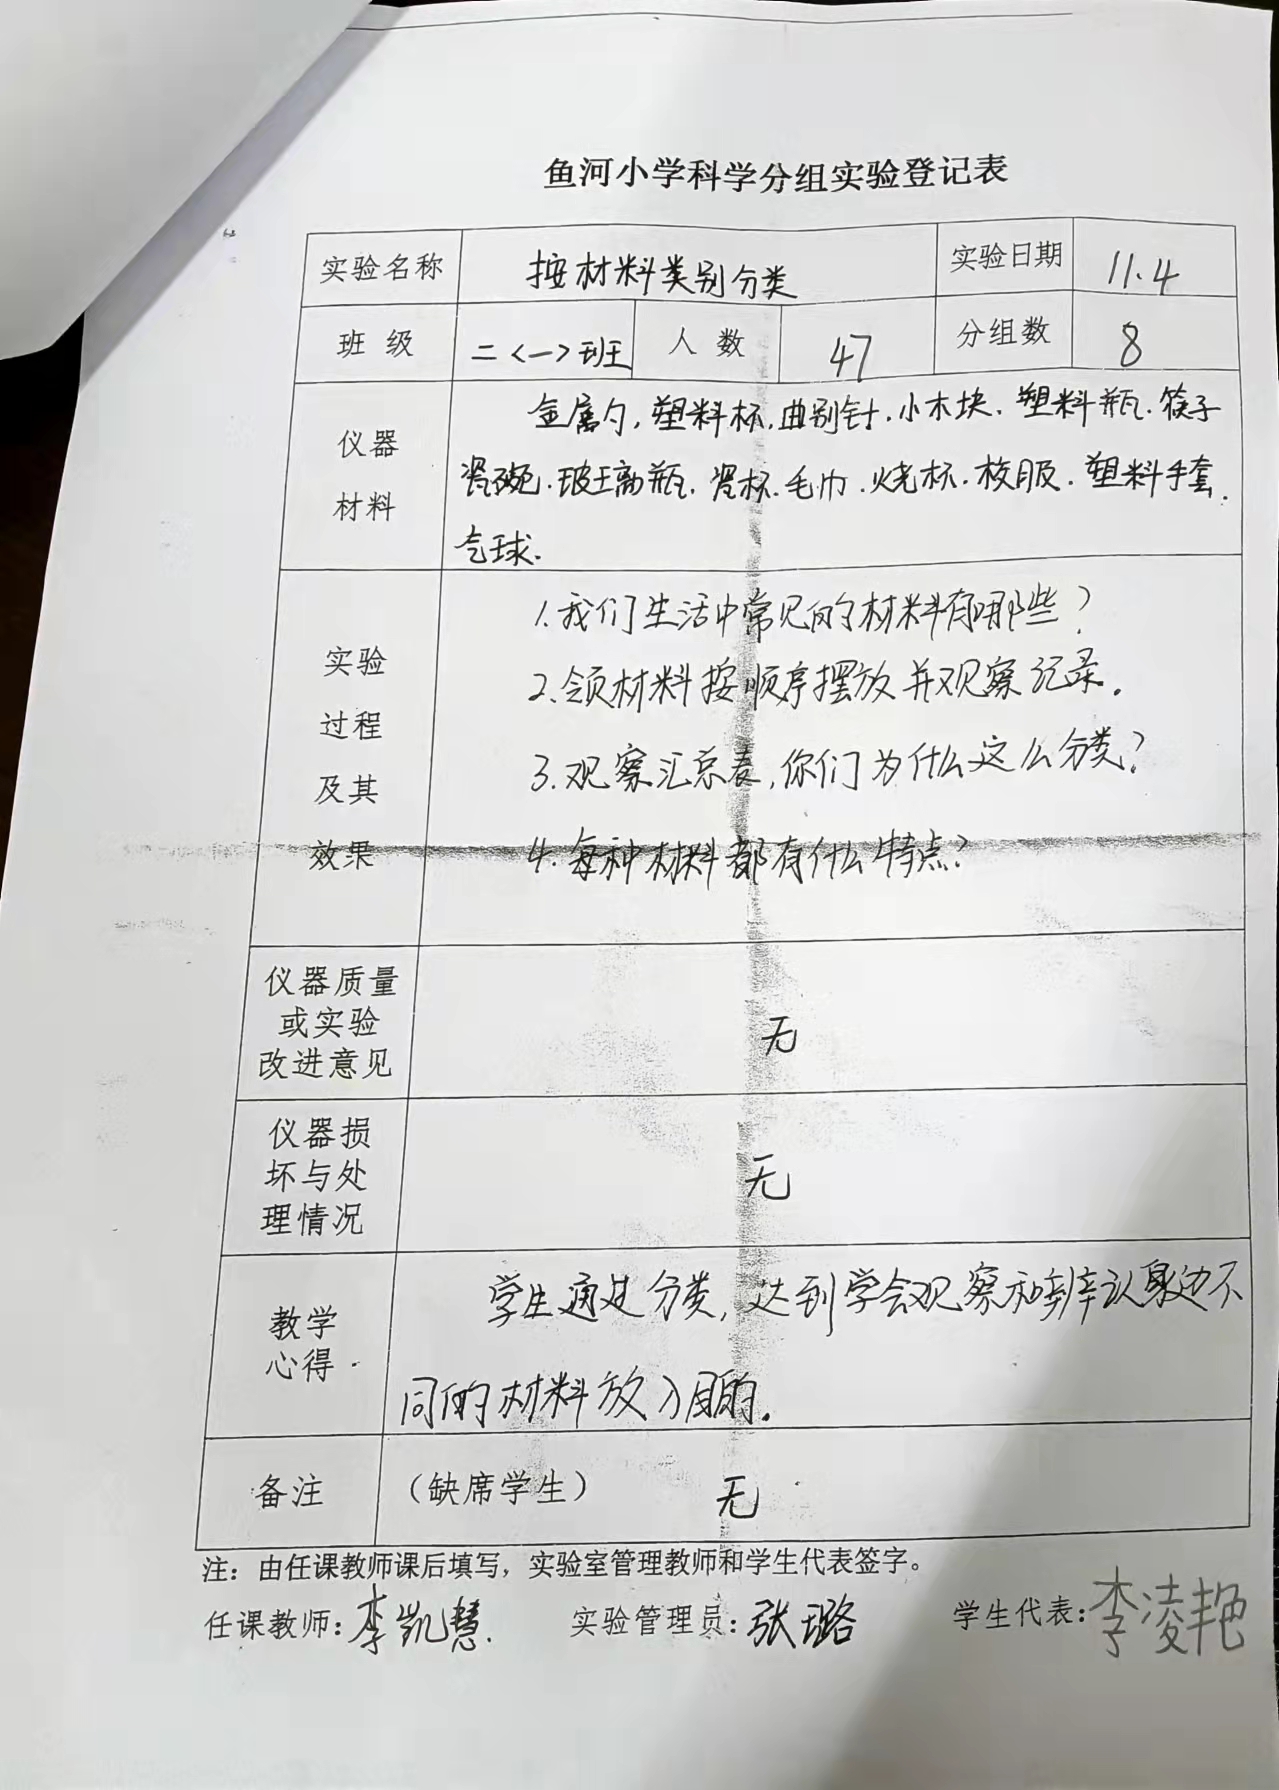 鱼河小学科学分组实验登记表
实验名称 按材料类别分类 实验日期 11.4
班 级 二<一>班 人 数 47 分组数 8
仪器
材料
金属勺,塑料杯,曲别针.小木块.塑料瓶.筷子
瓷碗.玻璃瓶.瓷杯.毛巾.烧杯.校服.塑料手套.
气球.
实验
过程
及其
效果
1.我们生活中常见的材料有哪些?
2.领材料按顺序摆放并观察记录.
3.观察汇总表,你们为什么这么分类?
4.每种材料都有什么特点?
仪器质量
或实验
改进意见
无
仪器损
坏与处
理情况
无
教学
心得
学生通过分类,达到学会观察和辨认身边不
同的材料放入目的.
备注 (缺席学生) 无
注:由任课教师课后填写,实验室管理教师和学生代表签字。
任课教师:李凯慧. 实验管理员:张璐 学生代表:李凌艳